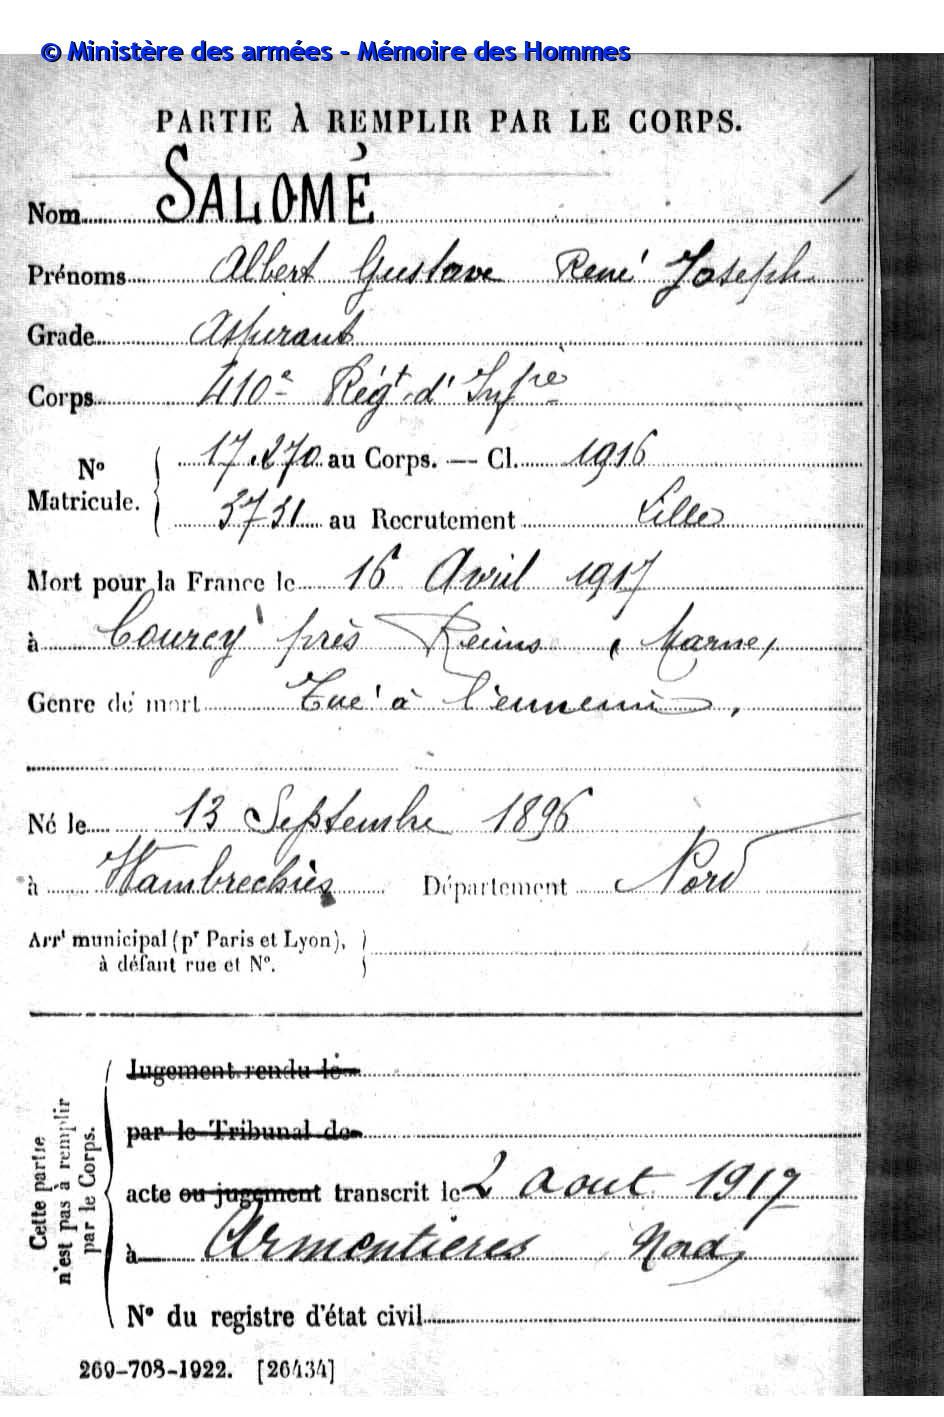 © Ministère des armées - Mémoire des Hommes
PARTIE À REMPLIR PAR LE CORPS.
Nom SALOMÉ
Prénoms Albert Gustave René Joseph
Grade Aspirant
Corps 410e Régt d'Infrie
No Matricule. 17.270 au Corps. — Cl. 1916
3731 au Recrutement Lille
Mort pour la France le 16 Avril 1917
à Courcy près Reims (Marne)
Genre de mort Tué à l'ennemi.
Né le 13 Septembre 1896
à Wambrechies Département Nord
Arrt municipal (pr Paris et Lyon),
à défaut rue et No.
Cette partie n'est pas à remplir par le Corps.
Jugement rendu le
par le Tribunal de
acte ou jugement transcrit le 2 aout 1917
à Armentières Nord
No du registre d'état civil
269-708-1922. [26434]